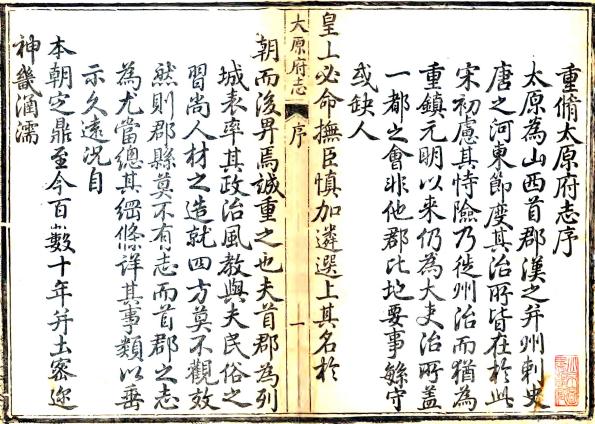 重脩太原府志序
太原為山西首郡漢之并州刺史
唐之河東節度其治所皆在於此
宋初慮其恃險乃徙州治而猶為
重鎮元明以來仍為大吏治所蓋
一都之會非他郡比地要事緐守
或缺人
皇上必命撫臣慎加遴選上其名於
太原府志 序 一
朝而後畀焉誠重之也夫首郡為列
城表率其政治風教與夫民俗之
習尚人材之造就四方莫不觀效
然則郡縣莫不有志而首郡之志
為尤當總其綱條詳其事類以垂
示久遠況自
本朝定鼎至今百數十年并土密邇
神畿涵濡